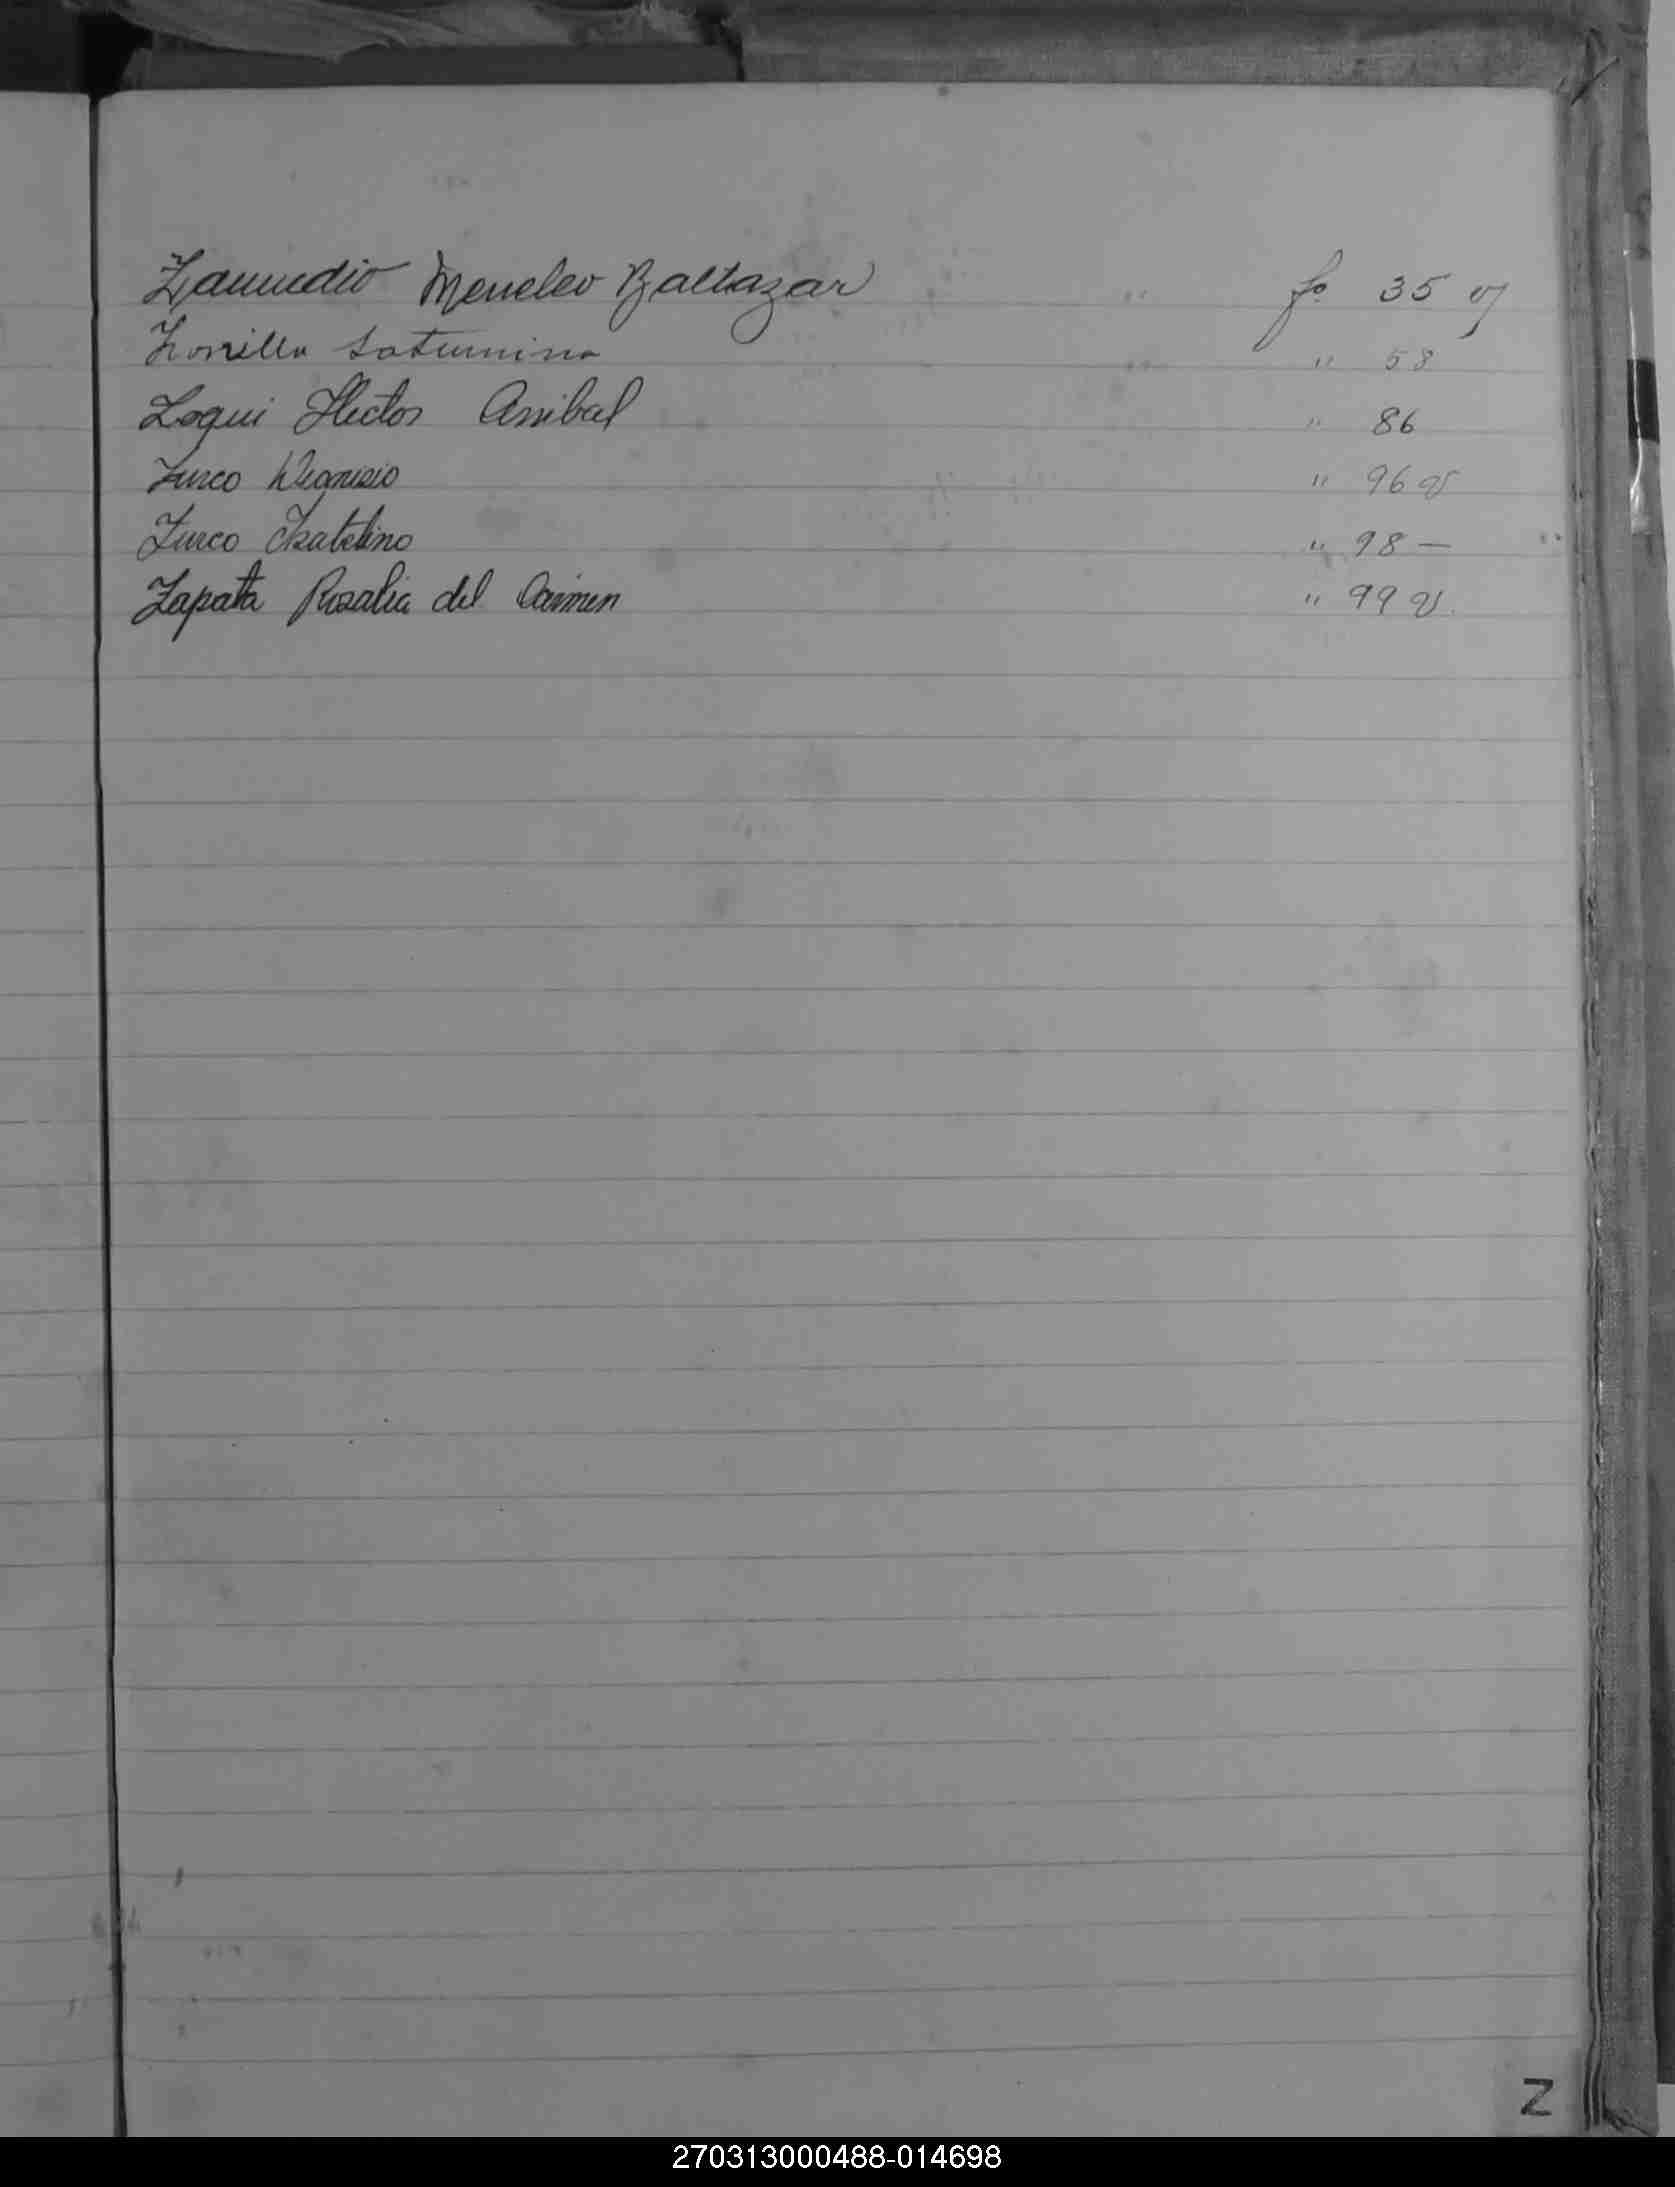 Zamudio Meneleo Baltazar " fo 35 v
Zorrilla Saturnina " 58
Zoqui Hector Anibal " 86
Zurco Dionisio " 96 v
Zurco Isabelino " 98 —
Zapata Rosalia del Carmen " 99 v.
Z
270313000488-014698